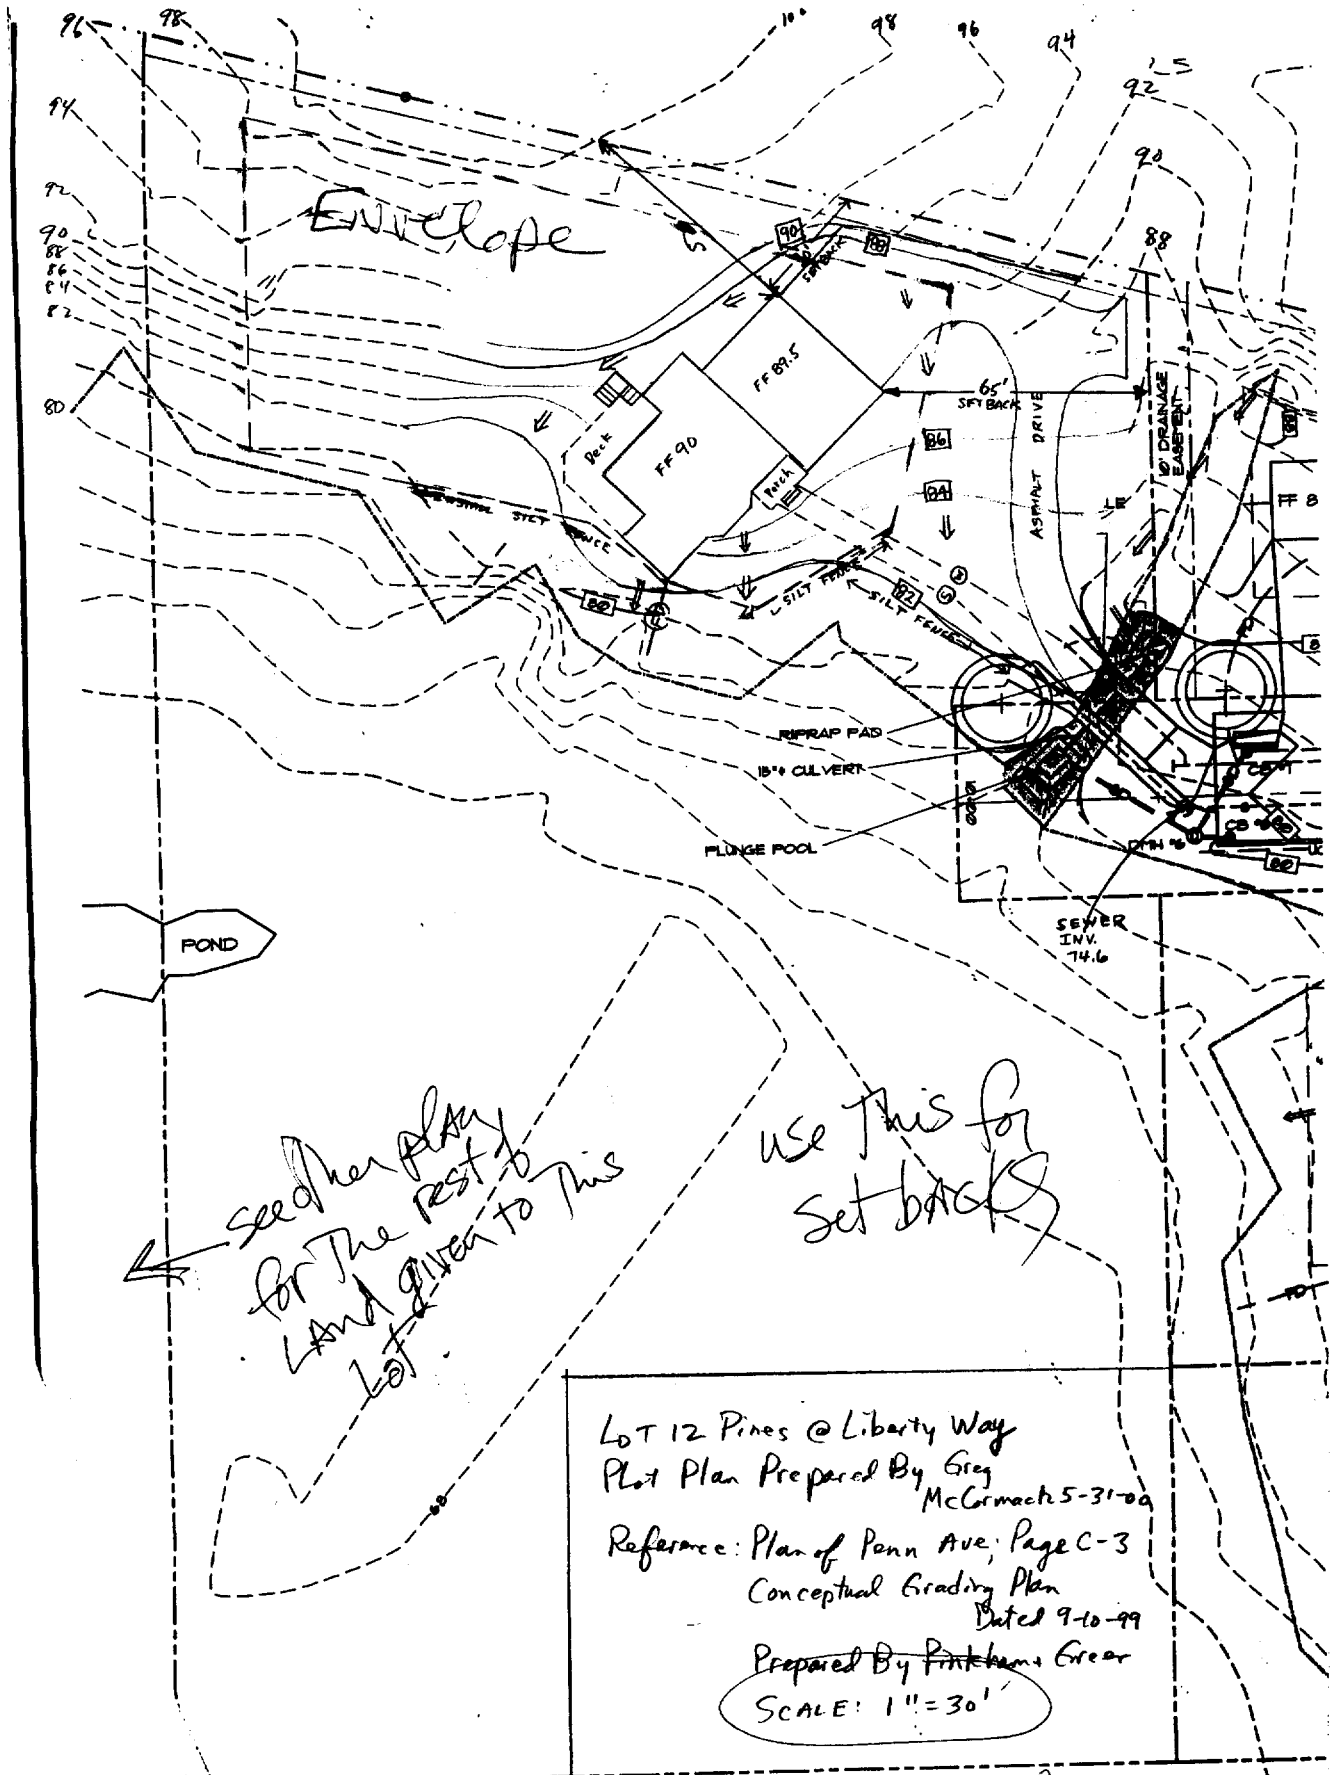 96
98
100
98
96
94
92
94
90
92
88
90
88
86
84
82
80
Envelope
90
88
SETBACK
FF 89.5
65'
SETBACK
ASPHALT DRIVE
10' DRAINAGE
EASEMENT
Deck
FF 90
Porch
86
84
FF 8
SILT
FENCE
80
SILT FENCE
82
SILT FENCE
S
RIPRAP PAD
15"ø CULVERT
PLUNGE POOL
SEWER
INV.
74.6
POND
see other plan
for The rest of
LAnd given to This
Lot.
use This for
Set bACKS
68
LOT 12 Pines @ Liberty Way
Plot Plan Prepared By Greg
McCormack 5-31-00
Reference: Plan of Penn Ave; Page C-3
Conceptual Grading Plan
Dated 9-10-99
Prepared By Pinkham + Greer
SCALE: 1" = 30'